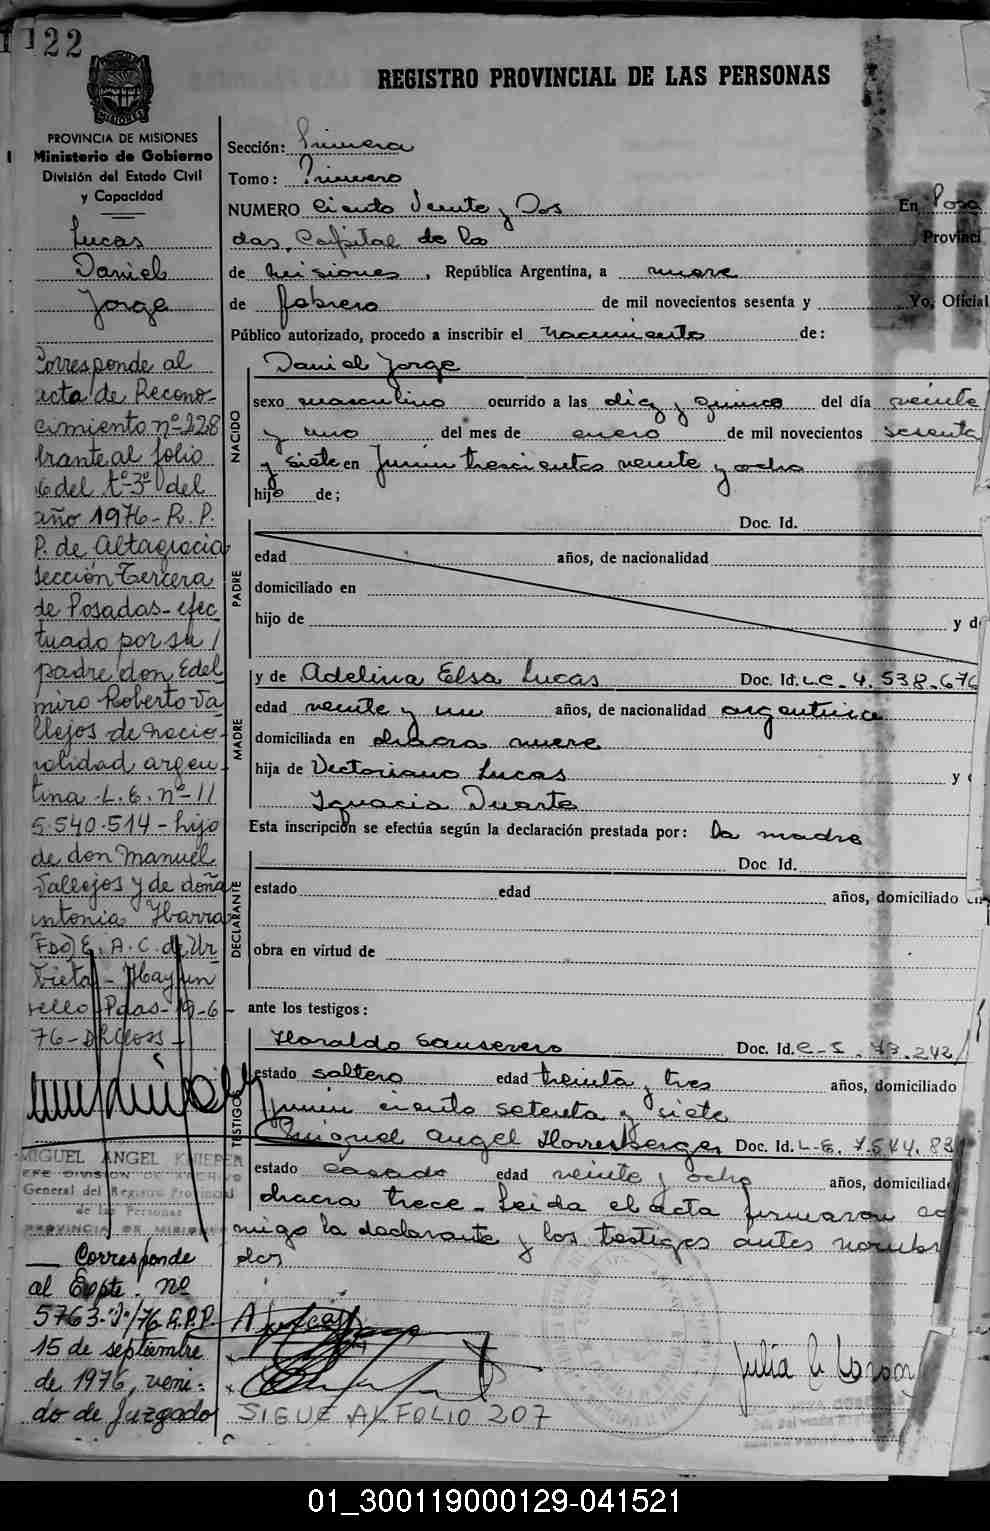 122
REGISTRO PROVINCIAL DE LAS PERSONAS
PROVINCIA DE MISIONES
Ministerio de Gobierno
División del Estado Civil
y Capacidad
Lucas
Daniel
Jorge
Corresponde al
acta de Recono-
cimiento nº 228
brante al folio
del tº 3º del
año 1976 - R. P.
P. de Altagracia
Sección Tercera
de Posadas - efec
tuado por su
padre don Edel
miro Roberto Va
llejos de nacio-
nalidad argen
tina - L. E. nº 11
5.540.514 - hijo
de don Manuel
Vallejos y de doña
Antonia Ibarra
FDO E. A. C. de Ur
vieta - Hay un
sello - Pdas - 19-6-
76 -
MIGUEL ANGEL KNIEPER
JEFE DIVISION DE ARCHIVO
General del Registro Provincial
de las Personas
PROVINCIA DE MISIONES
Corresponde
al Expte. nº
5763-J-/76 R.P.P.
15 de septiembre
de 1976, veni-
do de Juzgado
Sección: Primera
Tomo: Primero
NUMERO Ciento Veinte y Dos En Posa
das, Capital de la Provinci
de Misiones, República Argentina, a nueve
de febrero de mil novecientos sesenta y Yo, Oficial
Público autorizado, procedo a inscribir el nacimiento de:
NACIDO
Daniel Jorge
sexo masculino ocurrido a las diez y quince del día veinte
y uno del mes de enero de mil novecientos sesenta
y siete en Junín trescientos veinte y ocho
hijo de;
PADRE
Doc. Id.
edad años, de nacionalidad
domiciliado en
hijo de y d
MADRE
y de Adelina Elsa Lucas Doc. Id. L.C. 4.538.676
edad veinte y un años, de nacionalidad argentina
domiciliada en chacra nueve
hija de Victoriano Lucas y
Ignacia Duarte
Esta inscripción se efectúa según la declaración prestada por: La madre
DECLARANTE
Doc. Id.
estado edad años, domiciliado en
obra en virtud de
ante los testigos:
TESTIGOS
Haroldo Sansevero Doc. Id. C. I. 73.242
estado soltero edad treinta y tres años, domiciliado
Junín ciento setenta y siete
Miguel Angel Doc. Id. L.E. 7.544.83
estado casado edad veinte y ocho años, domiciliado
chacra trece - Leida el acta firmaron co
migo la declarante y los testigos antes nombra
dos
A Lucas
Julia C. de
SIGUE AL FOLIO 207
01_300119000129-041521